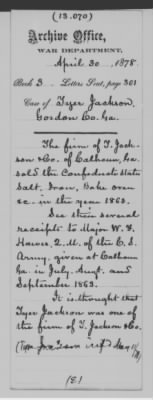 (13.070)
Archive Office,
WAR DEPARTMENT,
April 30, 1878.
Book 3. Letters Sent, page 301
Case of Tyer Jackson,
Gordon Co. Ga.
The firm of T. Jack-
son & Co. of Calhoun, Ga.
sold the Confederate States
Salt, Iron, Bake oven
&c. in the year 1863.
See their several
receipts to Major W. F.
Q. M. of the C. S.
Army, given at Calhoun
Ga. in July, Augt. and
September 1863.
It is thought that
Tyer Jackson was one of
the firm of T. Jackson & Co.
Jackson
(E)